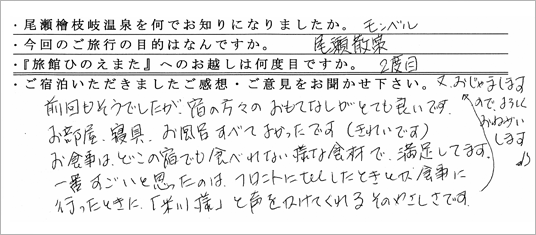 ・尾瀬檜枝岐温泉を何でお知りになりましたか。 モンベル
・今回のご旅行の目的はなんですか。 尾瀬散策
・『旅館ひのえまた』へのお越しは何度目ですか。 2度目
・ご宿泊いただきましたご感想・ご意見をお聞かせ下さい。
前回もそうでしたが、宿の方々のおもてなしがとても良いです。
お部屋、寝具、お風呂すべてよかったです(きれいです)
お食事は、どこの宿でも食べれない様な食材で、満足してます。
一番すごいと思ったのは、フロントにtelしたときとか食事に
行ったときに、「 様」と声をかけてくれるそのやさしさです。
又、おじゃまします
ので、よろしく
おねがい
します